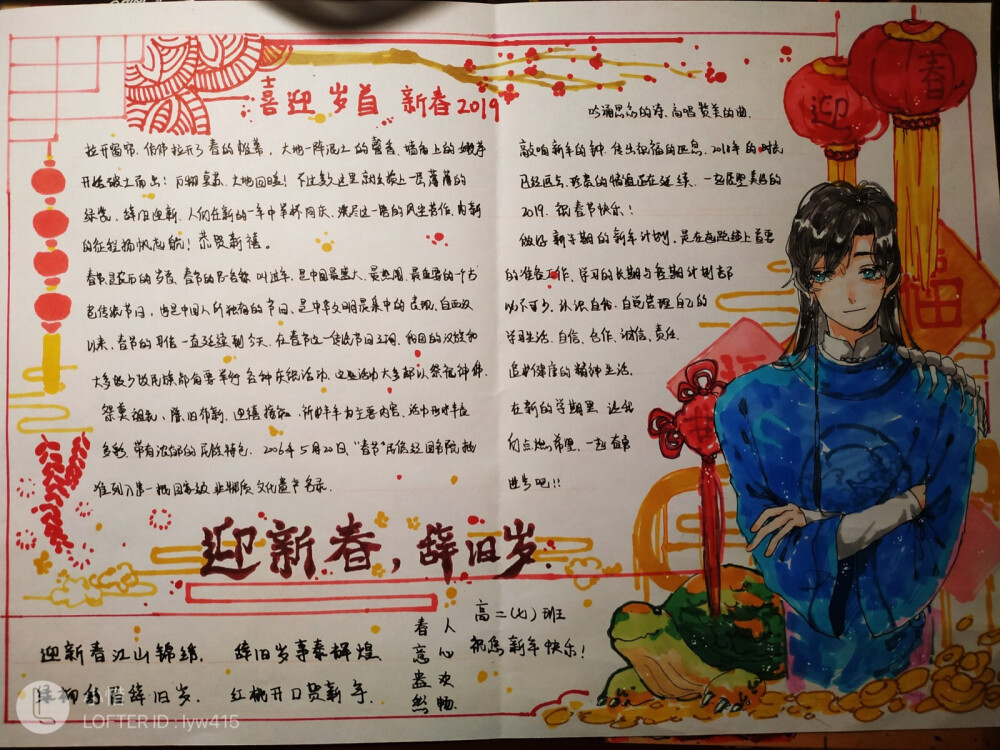 喜迎岁首 新春2019
拉开窗帘，仿佛拉开了春的帷幕，大地一阵泥土的馨香，墙角上的嫩芽
开始破土而出；万物复苏，大地回暖！不过多久这里就会换上一片蓬蓬的
绿裳，辞旧迎新，人们在新的一年中举杯同庆，洗尽这一路的风尘劳作，向新
的征程扬帆起航！恭贺新禧。
春节是农历的岁首，春节的另名称叫过年，是中国最盛大、最热闹、最重要的一个古
老传统节日，也是中国人所独有的节日，是中华文明最集中的表现，自西汉
以来，春节的习俗一直延续到今天，在春节这一传统节日期间，我国的汉族和
大多数少数民族都有要举行各种庆祝活动，这些活动大多都以祭祀神佛、
祭奠祖先、除旧布新、迎禧接福、祈求丰年为主要内容，活动形式丰富
多彩，带有浓郁的民族特色，2006年5月20日，"春节"民俗经国务院批
准列入第一批国家级非物质文化遗产名录.
吟诵思乡的诗，高唱赞美的曲.
敲响新年的钟，传出祝福的讯息，2018年的时光
已经远去，珍贵的情谊正在延续，一起展望美好的
2019. 祝春节快乐！
做好新学期的新年计划，是在起跑线上首要
的准备工作，学习的长期与短期计划都
必不可少，认识自我，自觉管理自己的
学习生活，自信、合作、诚信、责任，
追求健康的精神生活.
在新的学期里，让我
们点燃希望，一起奋勇
进步吧！！
迎
春
福
迎新春，辞旧岁.
迎新春江山锦绣， 辞旧岁事泰辉煌.
绿柳舒眉辞旧岁， 红桃开口贺新年.
春意盎然
人心欢畅
高二（七）班
祝您新年快乐！
LOFTER ID : lyw415